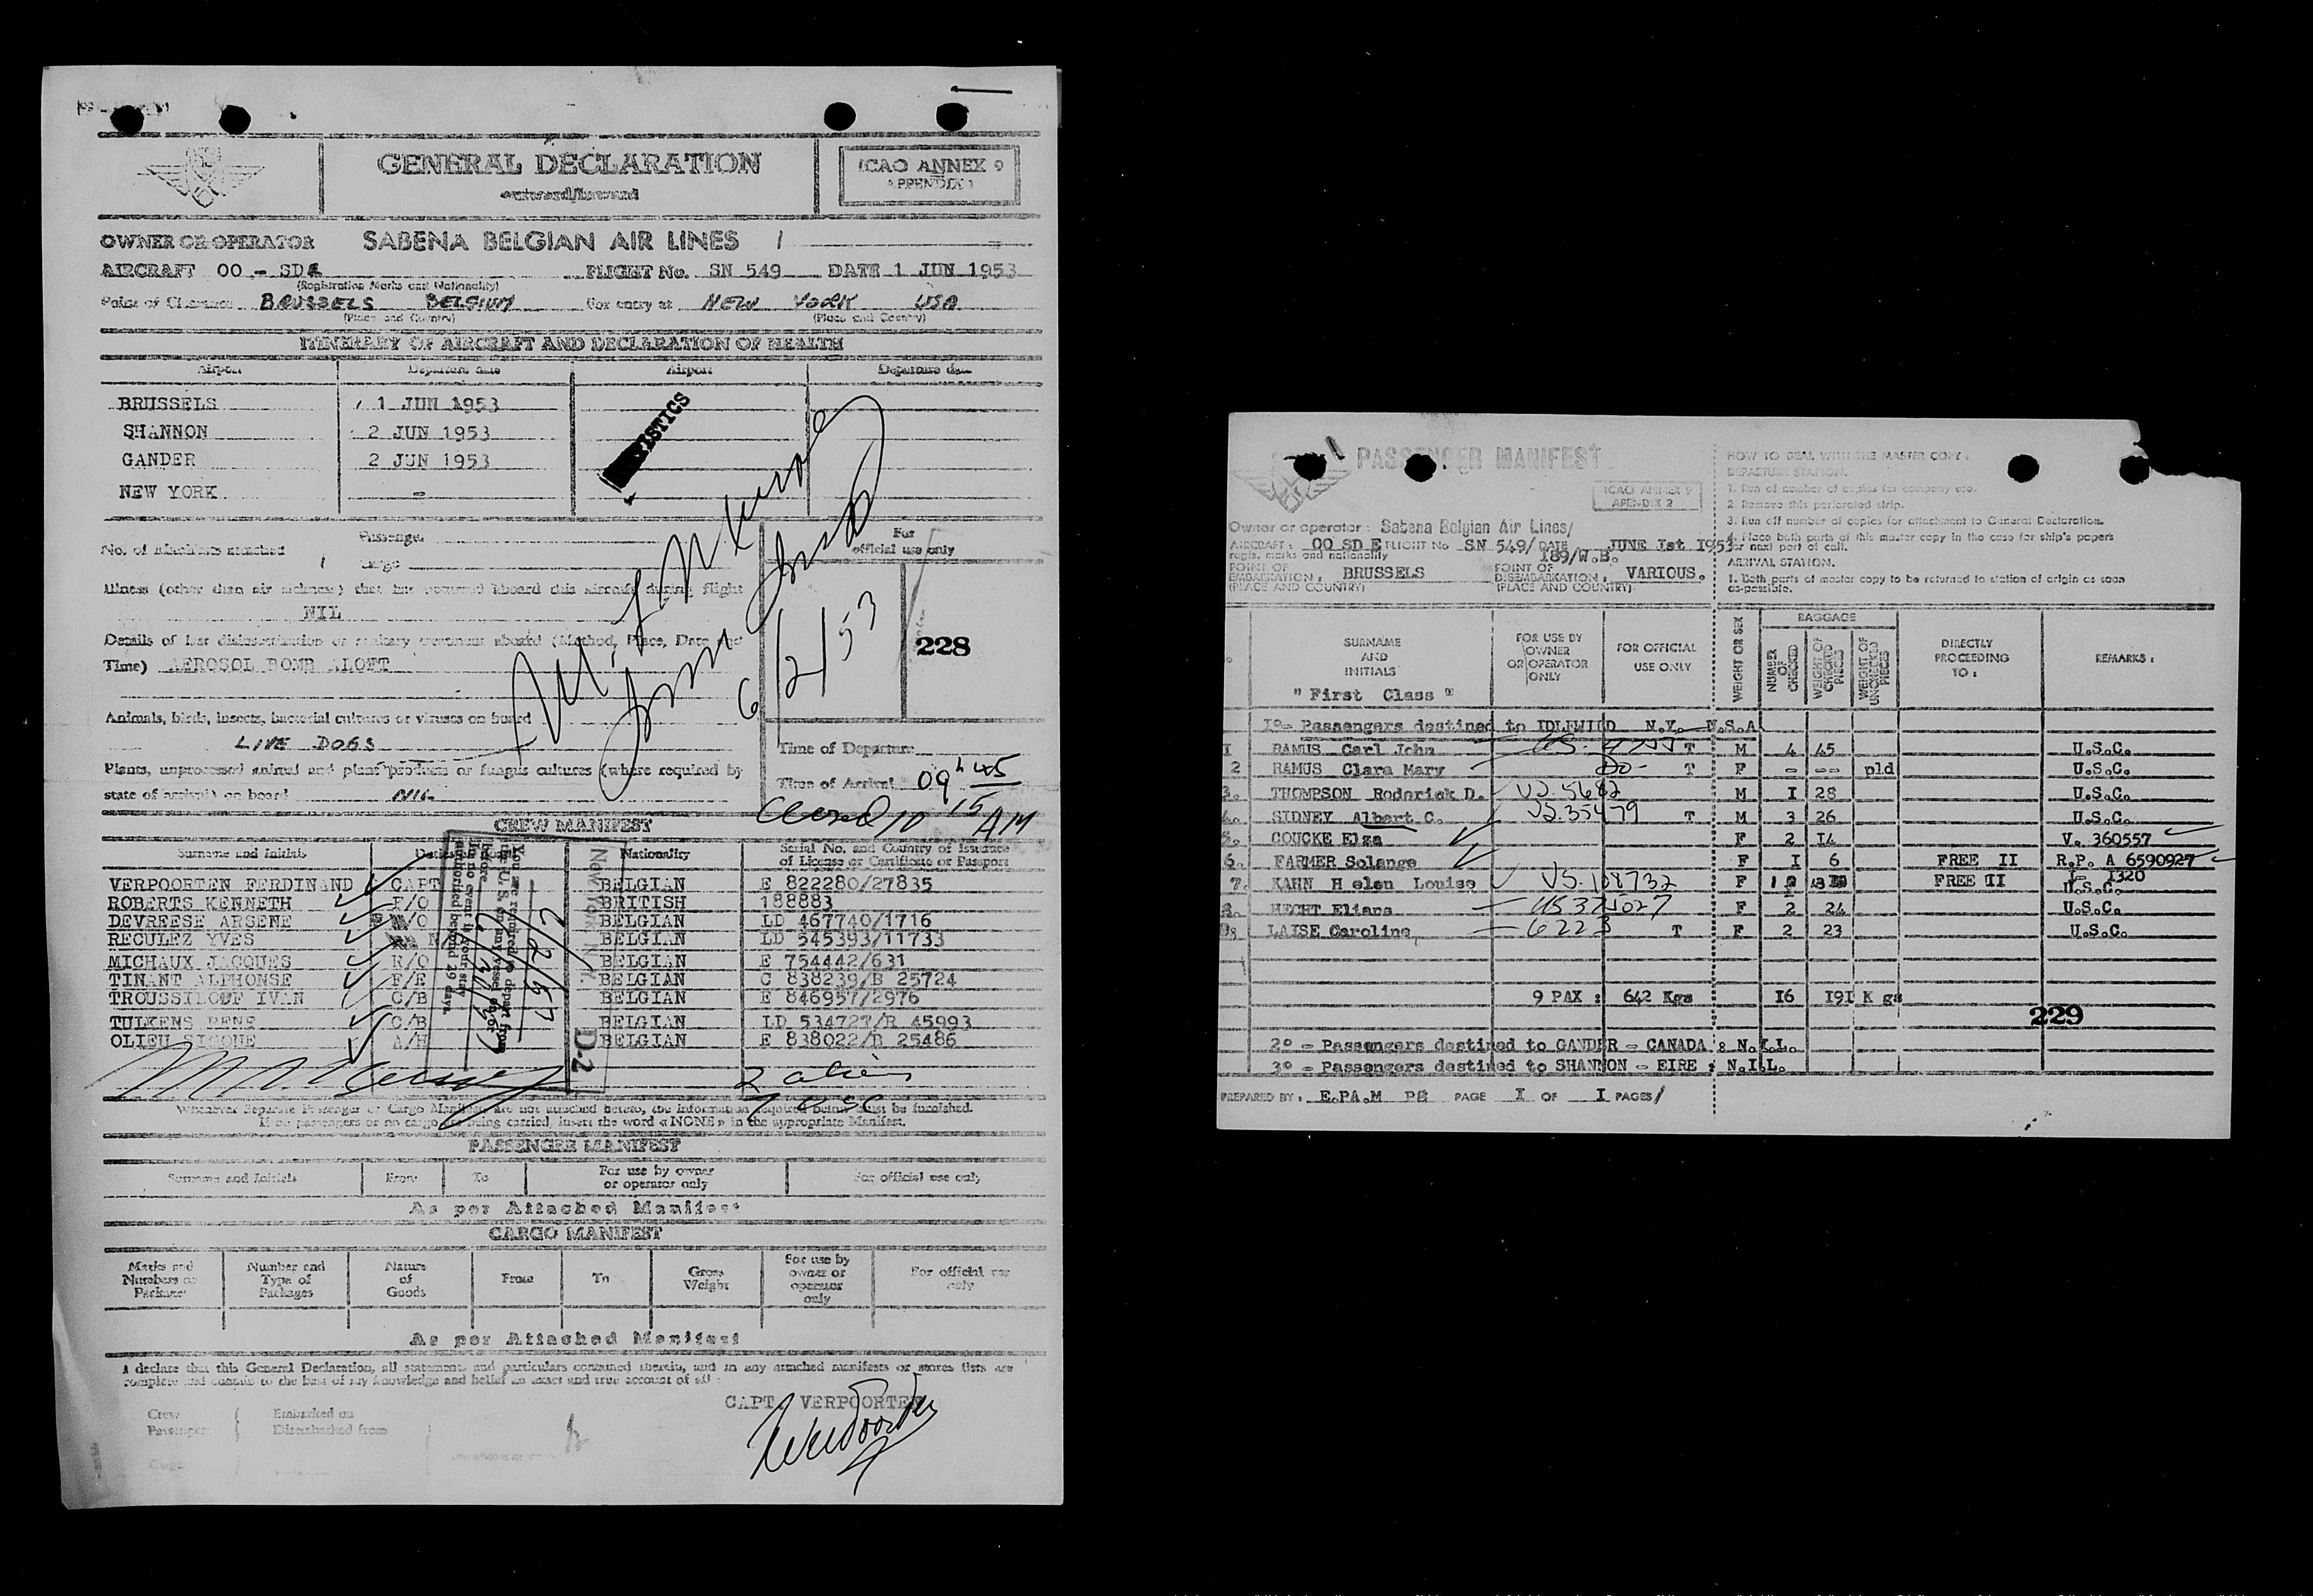 GENERAL DECLARATION
outward/inward
ICAO ANNEX 9
APPENDIX 1
OWNER OR OPERATOR SABENA BELGIAN AIR LINES /
AIRCRAFT OO - SDE FLIGHT No. SN 549 DATE 1 JUN 1953
(Registration Marks and Nationality)
Point of Clearance BRUSSELS BELGIUM For entry at NEW YORK USA
(Place and Country) (Place and Country)
ITINERARY OF AIRCRAFT AND DECLARATION OF HEALTH
Airport Departure date Airport Departure date
BRUSSELS 1 JUN 1953
SHANNON 2 JUN 1953
GANDER 2 JUN 1953
NEW YORK -
No. of manifests attached
Passenger
Cargo
For
official use only
Illness (other than air sickness) that has occurred aboard this aircraft during flight
NIL
Details of last disinsectisation or sanitary treatment aboard (Method, Place, Date and
Time) AEROSOL BOMB ALOFT
6/2/53
228
Animals, birds, insects, bacterial cultures or viruses on board
LIVE DOGS
Plants, unprocessed animal and plant products or fungus cultures (where required by
state of arrival) on board NIL
Time of Departure
Time of Arrival 09h 45
Closed 10 15 AM
CREW MANIFEST
Surname and Initials Nationality Serial No. and Country of Issuance
of License or Certificate or Passport
VERPOORTEN FERDINAND CAPT BELGIAN E 822280/27835
ROBERTS KENNETH F/O BRITISH 188883
DEVREESE ARSENE /O BELGIAN LD 467740/1716
RECULEZ YVES BELGIAN LD 545393/11733
MICHAUX JACQUES R/O BELGIAN E 754442/631
TINANT ALPHONSE F/E BELGIAN C 838239/B 25724
TROUSSILOUF IVAN C/B BELGIAN E 846957/2976
TULKENS RENE C/B BELGIAN LD 534727/B 45993
OLIEU SIMONE A/H BELGIAN E 838022/B 25486
You are required to depart from
the U.S. on any vessel on or
before
In no event is your stay
authorized beyond 29 days.
New York N.Y.
D-2
2 aliens
7 usc
Whenever Separate Passenger or Cargo Manifests are not attached hereto, the information required below must be furnished.
If no passengers or no cargo are being carried, insert the word «NONE» in the appropriate Manifest.
PASSENGER MANIFEST
Surname and Initials From To For use by owner
or operator only For official use only
As per Attached Manifest
CARGO MANIFEST
Marks and
Numbers on
Packages
Number and
Type of
Packages
Nature
of
Goods
From
To
Gross
Weight
For use by
owner or
operator
only
For official use
only
As per Attached Manifest
I declare that this General Declaration, all statements and particulars contained therein, and in any attached manifests or stores lists are
complete and contain to the best of my knowledge and belief an exact and true account of all :
CAPT. VERPOORTEN
Crew
Passengers
Cargo
Embarked on
Disembarked from
PASSENGER MANIFEST
ICAO ANNEX 9
APENDIX 2
HOW TO DEAL WITH THE MASTER COPY :
DEPARTURE STATION.
1. Run of number of copies for company use.
2. Remove this perforated strip.
3. Run off number of copies for attachment to General Declaration.
4. Place both parts of this master copy in the case for ship's papers
for next port of call.
ARRIVAL STATION.
1. Both parts of master copy to be returned to station of origin as soon
as possible.
Owner or operator : Sabena Belgian Air Lines/
AIRCRAFT : OO SD E FLIGHT No SN 549/ DATE JUNE Ist 1953
regis. marks and nationality 189/W.B.
POINT OF
EMBARKATION : BRUSSELS
(PLACE AND COUNTRY)
POINT OF
DISEMBARKATION : VARIOUS.
(PLACE AND COUNTRY)
SURNAME
AND
INITIALS
"First Class"
FOR USE BY
OWNER
OR OPERATOR
ONLY
FOR OFFICIAL
USE ONLY
WEIGHT OR SEX
BAGGAGE
NUMBER
OF
CHECKED
WEIGHT OF
CHECKED
PIECES
WEIGHT OF
UNCHECKED
PIECES
DIRECTLY
PROCEEDING
TO :
REMARKS :
1o- Passengers destined to IDLEWILD N.Y. U.S.A.
1 RAMUS Carl John T M 4 45 U.S.C.
2 RAMUS Clara Mary Do- T F - -- pld U.S.C.
3. THOMPSON Roderick D. US.5682 M I 28 U.S.C.
4. SIDNEY Albert C. US.35479 T M 3 26 U.S.C.
5. COUCKE Elza F 2 14 V. 360557
6. FARMER Solange F I 6 FREE II R.P. A 6590927
7. KAHN Helen Louise US.108732 F FREE II I- 1320
U.S.C.
8. HECHT Eliane F 2 24 U.S.C.
9. LAISE Caroline 6223 T F 2 23 U.S.C.
9 PAX : 642 Kgs 16 191 K gs
229
2o - Passengers destined to GANDER - CANADA : N.I.L.
3o - Passengers destined to SHANNON - EIRE : N.I.L.
PREPARED BY : E.PA.M PS PAGE I OF I PAGES/